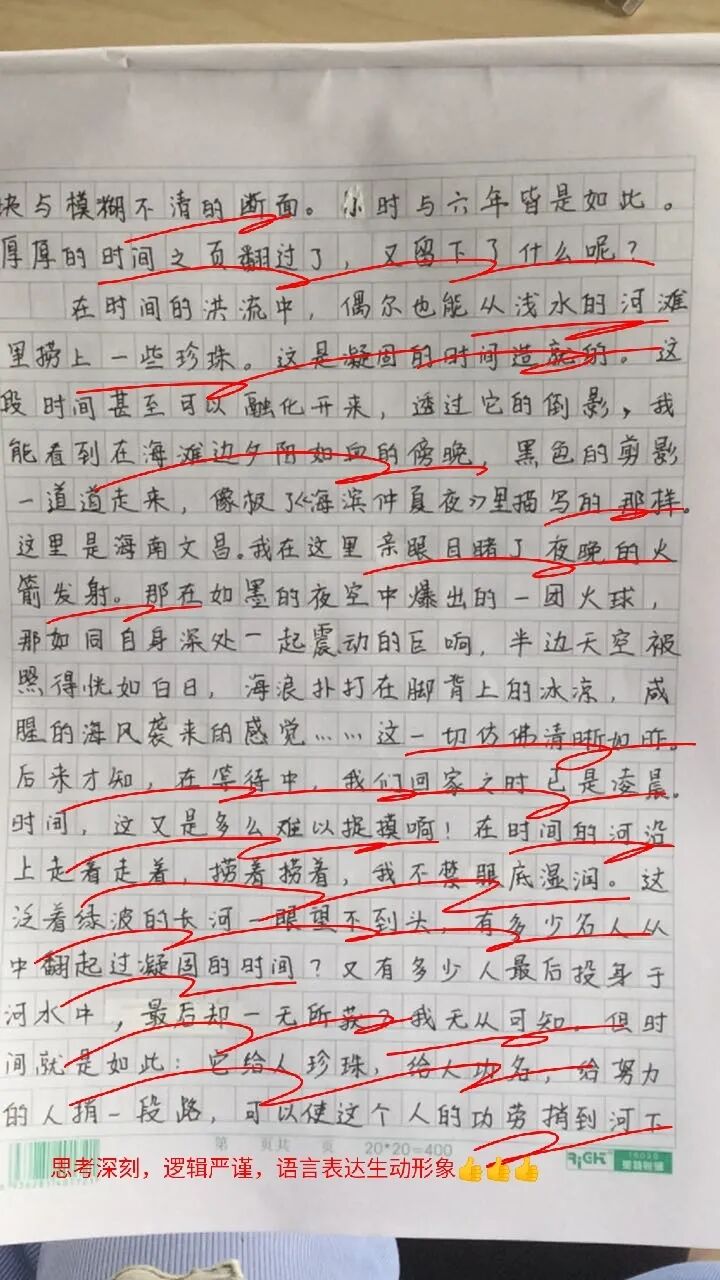 块与模糊不清的断面。小时与六年皆是如此。
厚厚的时间之页翻过了，又留下了什么呢？
在时间的洪流中，偶尔也能从浅水的河滩
里捞上一些珍珠。这是凝固的时间造就的。这
段时间甚至可以融化开来，透过它的倒影，我
能看到在海滩边夕阳如血的傍晚，黑色的剪影
一道道走来，像极了《海滨仲夏夜》里描写的那样。
这里是海南文昌。我在这里亲眼目睹了夜晚的火
箭发射。那在如墨的夜空中爆出的一团火球，
那如同自身深处一起震动的巨响，半边天空被
照得恍如白日，海浪扑打在脚背上的冰凉，咸
腥的海风袭来的感觉……这一切仿佛清晰如昨。
后来才知，在等待中，我们回家之时已是凌晨。
时间，这又是多么难以捉摸啊！在时间的河沿
上走着走着，捞着捞着，我不禁眼底湿润。这
泛着绿波的长河一眼望不到头，有多少名人从
中翻起过凝固的时间？又有多少人最后投身于
河水中，最后却一无所获？我无从可知。但时
间就是如此：它给人珍珠，给人功名，给努力
的人捎一段路，可以使这个人的功劳捎到河下
第 页共 页 20*20=400
思考深刻，逻辑严谨，语言表达生动形象👍👍👍